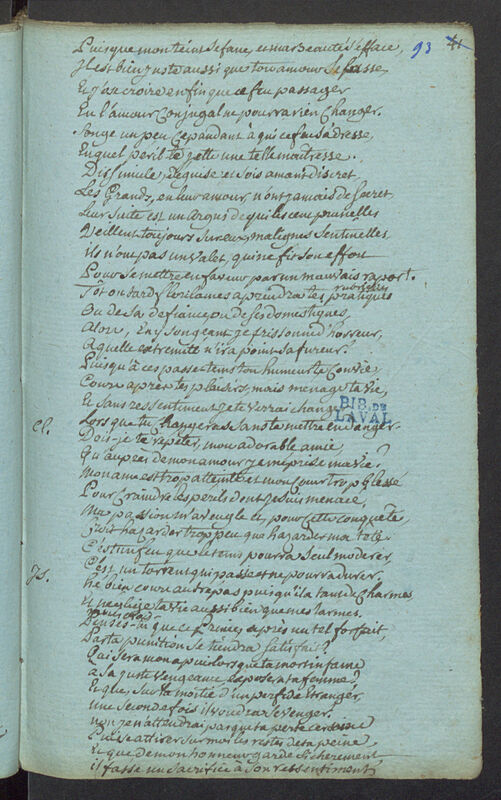 93 41
Puisque mon teint se fane, et ma beauté s'efface,
Il est bien juste aussi que ton amour se passe,
Et j'ose croire enfin que ce feu passager
En l'amour conjugal ne pourra rien changer.
Songe un peu cependant à qui ce feu s'adresse,
En quel péril te jette une telle maitresse.
Dissimule, déguise et sois amant discret,
Les Grands, en leur amour, n'ont jamais de secret,
Leur suite est un argus de qui les cent prunelles
Veillent toujours sur eux, malignes sentinelles
ils n'ont pas un valet, qui ne fit son effort
Pour se mettre en faveur par un mauvais raport.
Tôt ou tard florilâme aprendra tes pratiques
Ou de sa défiance, ou de ses domestiques,
Alors, en y songeant, je frissonne d'horreur,
A quelle extremité n'ira point sa fureur?
Puisqu'à ces passetems ton humeur te convie,
Cours après tes plaisirs, mais ménage ta vie,
Et sans ressentiment je te verrai changer
BIB. DE
LAVAL
Lors que tu changeras sans te mettre en danger.
Cl. Dois-je te répéter, mon adorable amie,
Qu'auprès de mon amour je méprise ma vie?
Mon ame est trop atteinte et mon coeur trop blessé
Pour craindre les perils dont je suis menacé,
Ma passion m'aveugle et, pour cette conquête
Croit hazarder trop peu que hazarder ma tête
C'est un feu que le tems pourra seul modérer,
C'est un torrent qui passe et ne pourra durer.
Is. Hé bien, cours au trépas puisqu'il a tant de charmes
Et néglige ta vie aussi bien que mes larmes.
Penses-tu que ce Prince, après un tel forfait,
Par ta punition se tiendra satisfait?
Qui sera mon apui lorsque ta mort infame
à sa juste vengeance exposera ta femme?
Et que, sur la moitié d'un perfide étranger,
Une seconde fois il voudra se venger?
non, je n'attendrai pas que ta perte
Puisse attirer sur moi les restes de ta peine,
Et que de mon honneur gardé si chèrement
il fasse un sacrifice à son ressentiment,